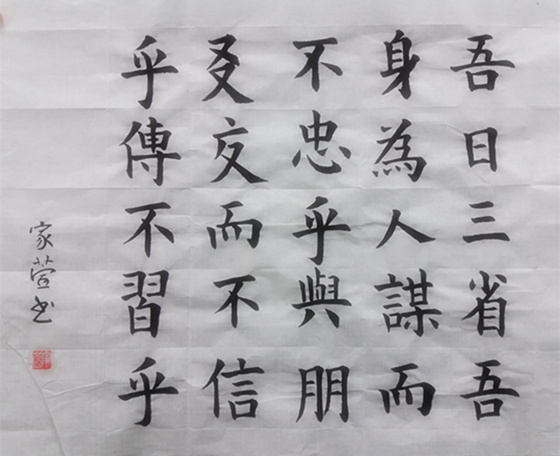 吾日三省吾
身為人謀而
不忠乎與朋
叐交而不信
乎傳不習乎
家萱书